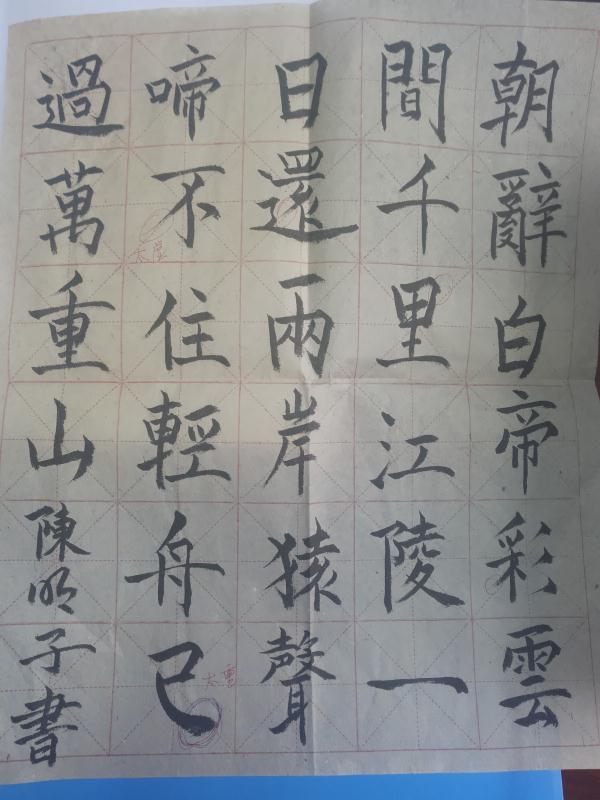 朝辭白帝彩雲
間千里江陵一
日還兩岸猿聲
啼不住輕舟已
過萬重山陳明子書
太厚
太重